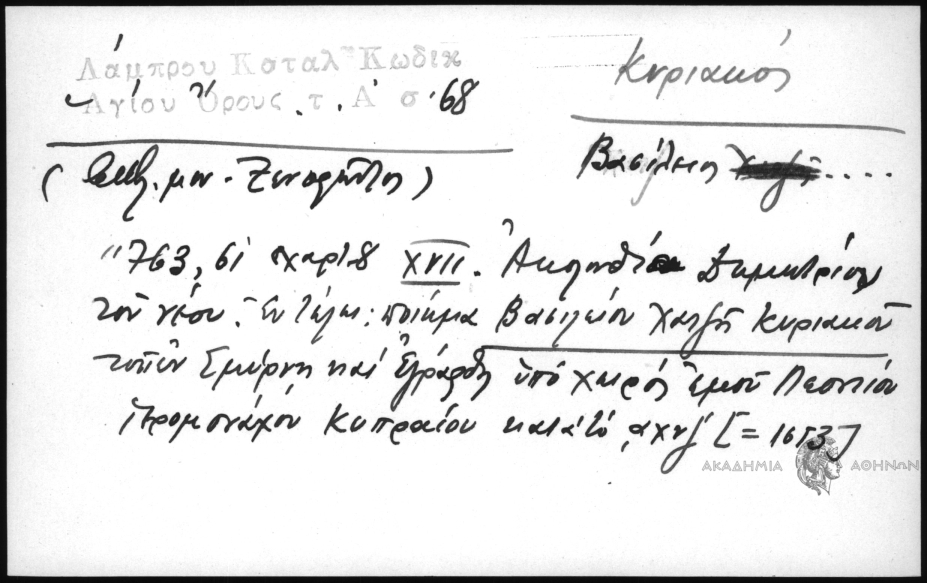 Λάμπρου Καταλ Κωδικ
Αγίου Όρους τ. Α σ. 68
Κυριακός
Βασίλειος ....
( μον. Ξενοφῶντος )
"763, 61 χαρτ. 8 XVII. Ἀκολουθία Δημητρίου
τοῦ νέου. Ἐν τέλει: ποίημα Βασιλείου Χατζῆ Κυριακοῦ
τοῦ ἐν Σμύρνῃ καὶ ἐγράφη ὑπὸ χειρός ἐμοῦ Λεοντίου
ἱερομονάχου Κυπραίου κατὰ τό ͵αχνγ [= 1653]
ΑΚΑΔΗΜΙΑ ΑΘΗΝΩΝ